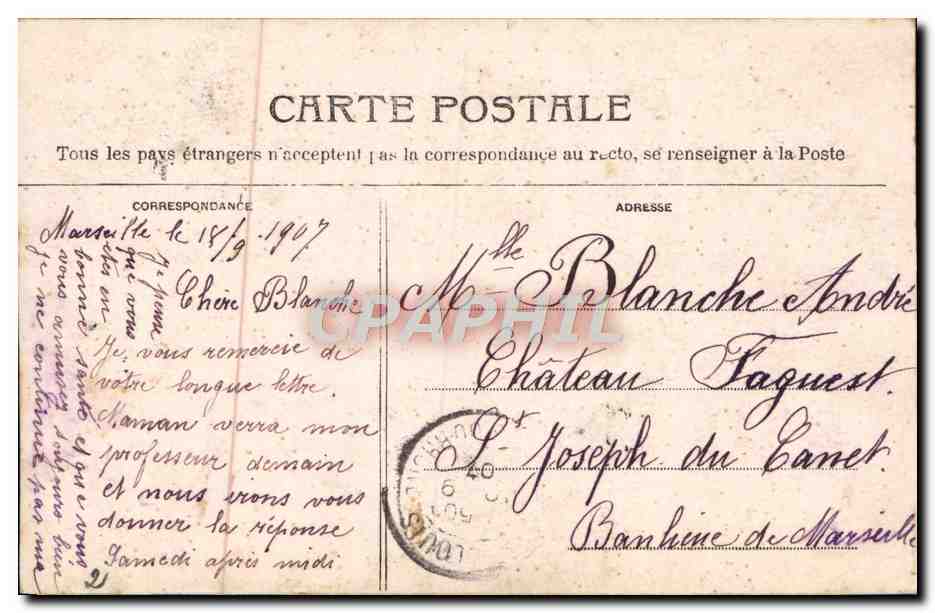 CARTE POSTALE
Tous les pays étrangers n'acceptent pas la correspondance au recto, se renseigner à la Poste
CORRESPONDANCE
Marseille le 18/9 1907
Chère Blanche
Je vous remercie de
votre longue lettre.
Maman verra mon
professeur demain
et nous irons vous
donner la réponse
Samedi après midi
Je pense
que vous
êtes en
bonne santé et que vous
vous amusez toujours bien
je ne continue pas ma
2
ADRESSE
Mlle Blanche André
Château Faguest.
St Joseph du Canet.
Banlieue de Marseille
CPAPHIL